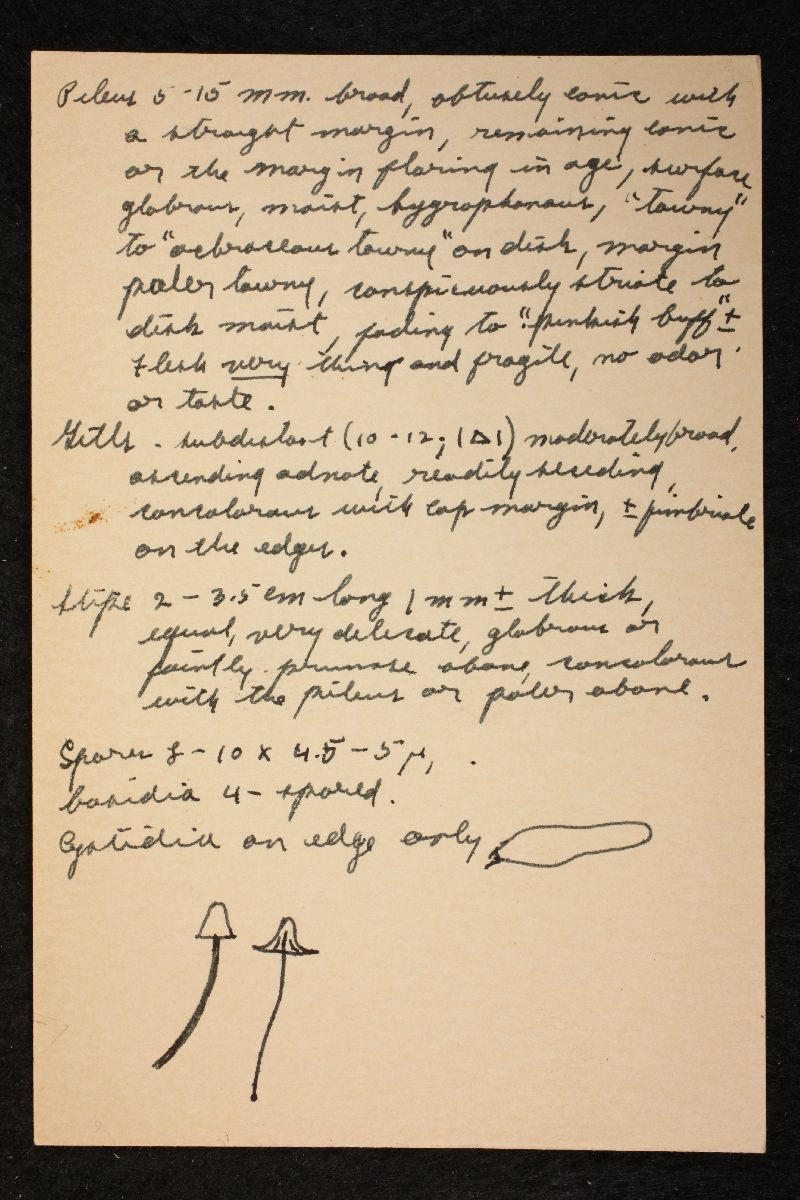 Pileus 5-15 mm. broad, obtusely conic with
a straight margin, remaining conic
or the margin flaring in age, surface
glabrous, moist, hygrophanous, "tawny"
to "ochraceous tawny" on disk, margin
paler tawny, conspicuously striate to
disk moist, fading to "pinkish buff" ±
Flesh very thin and fragile, no odor
or taste.
Gills - subdistant (10-12; 1Δ1) moderately broad,
ascending adnate, readily seceding,
concolorous with cap margin, ± fimbriate
on the edges.
Stipe 2 - 3.5 cm long 1 mm ± thick,
equal, very delicate, glabrous or
faintly pruinose above, concolorous
with the pileus or paler above.
Spores 8-10 x 4.5-5 μ,
basidia 4-spored.
Cystidia on edge only